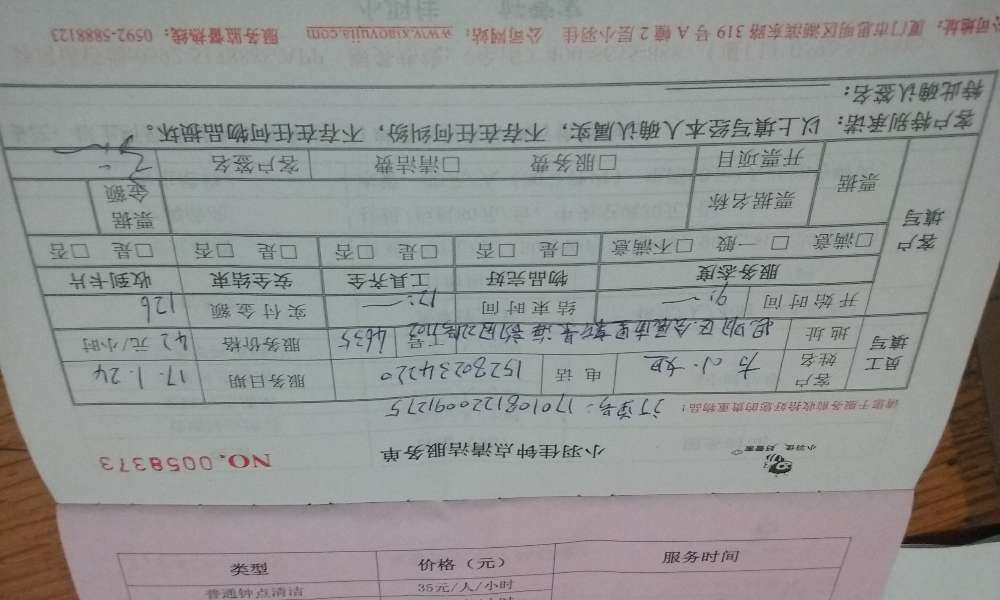 小羽佳钟点清洁服务单
NO.0058373
请您于服务前收拾好您的贵重物品: 订单号: 1701081220091275
员工填写 客户姓名 方小姐 电话 15280234220 服务日期 17.1.24
地址 工号 4635 服务价格 42元/小时
开始时间 9:— 结束时间 12:— 实付金额 126
客户填写 服务态度 物品完好 工具齐全 安全结束 收到卡片
□满意 □一般 □不满意 □是 □否 □是 □否 □是 □否 □是 □否
票据 票据名称 票据金额
开票项目 □服务费 □清洁费 客户签名
客户特别承诺: 以上填写经本人确认属实, 不存在任何纠纷, 不存在任何物品损坏。
特此确认签名:
公司地址: 厦门市思明区湖滨东路319号A幢2层小羽佳 公司网站: www.xiaoyujia.com 服务监督热线: 0592-5888123
类型 价格(元) 服务时间
普通钟点清洁 35元/人/小时